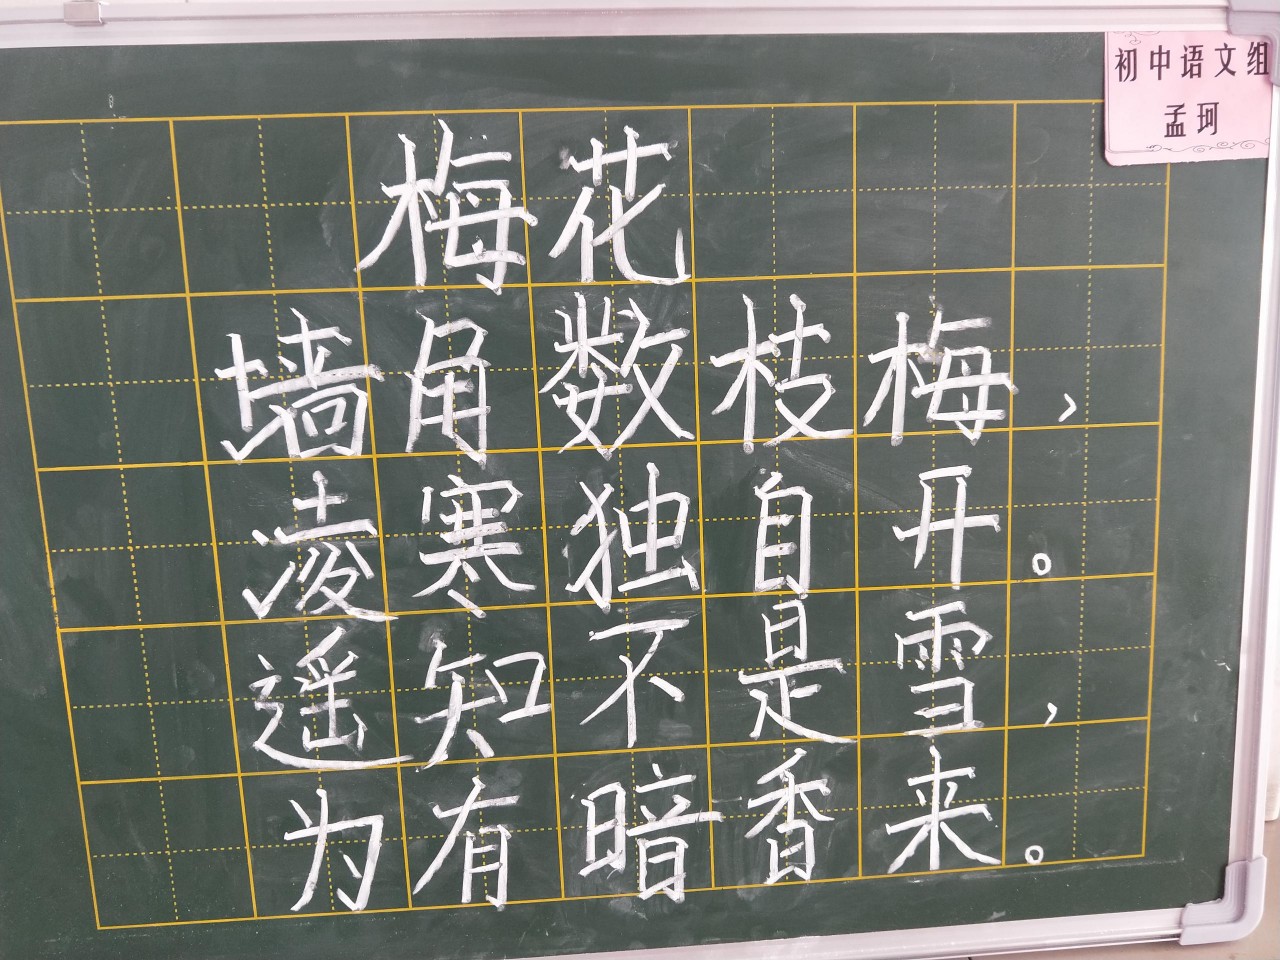 初中语文组
孟珂
梅花
墙角数枝梅，
凌寒独自开。
遥知不是雪，
为有暗香来。